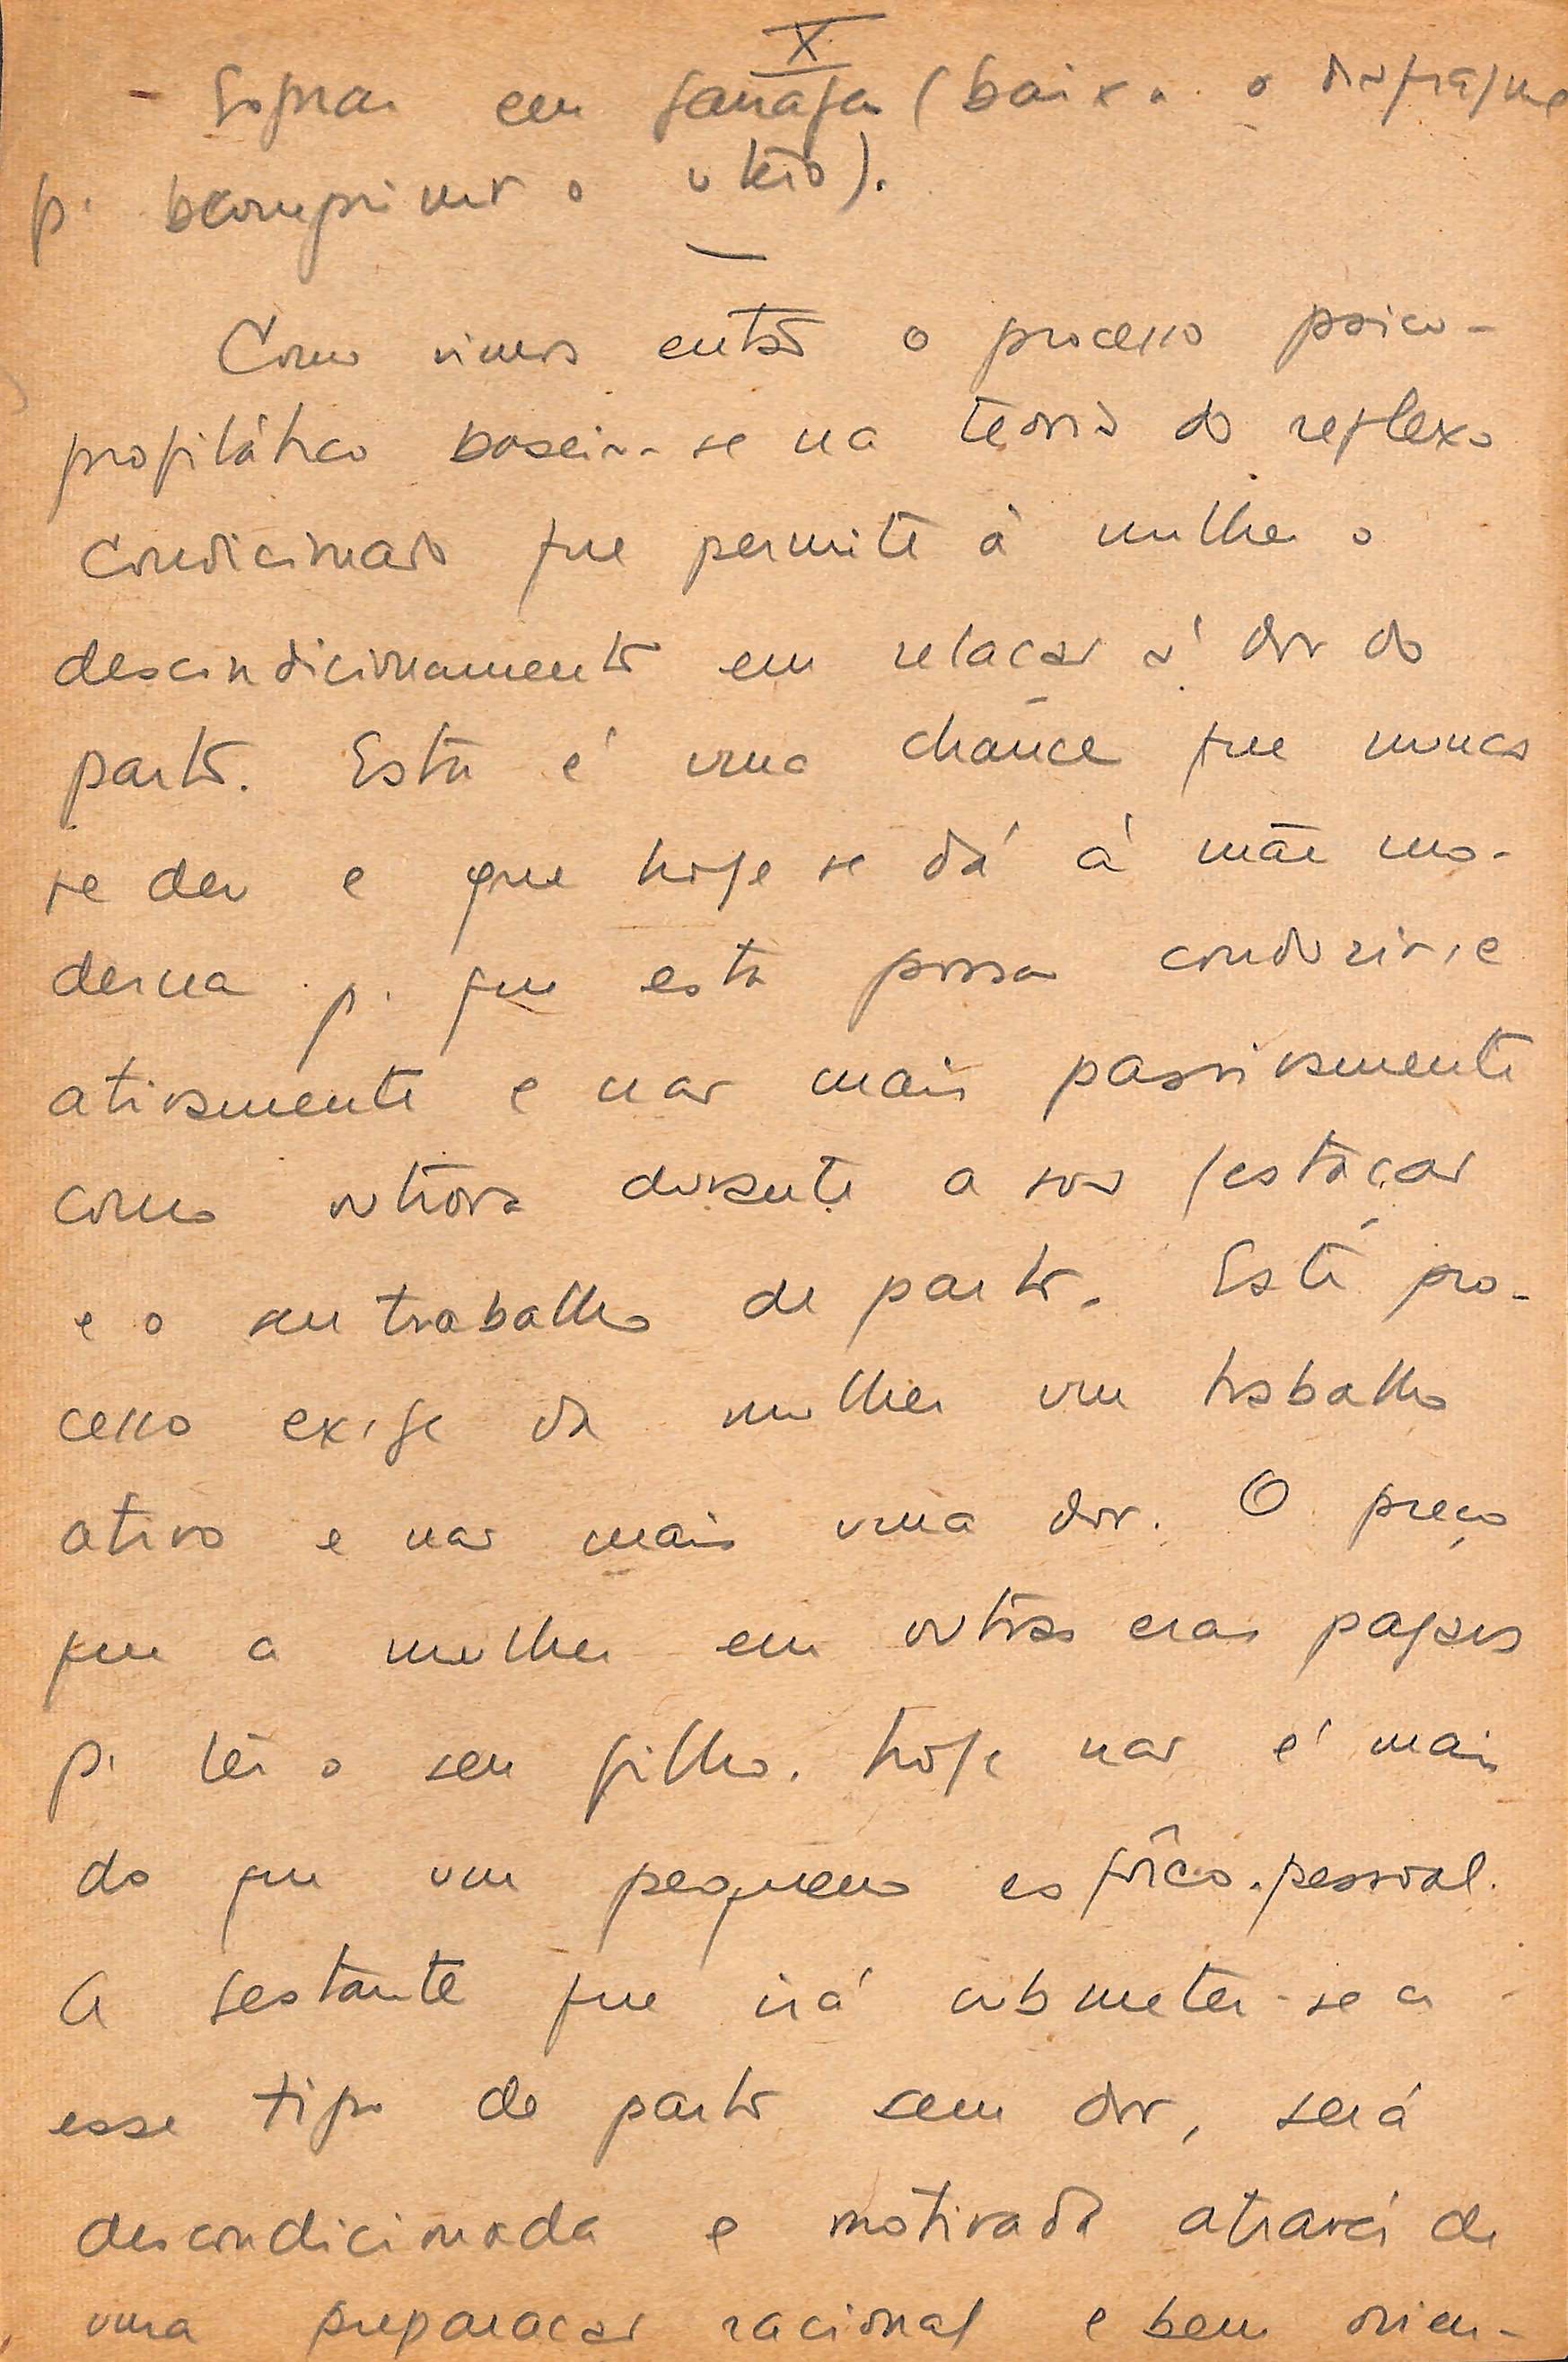 X
- Soprar em garrafa (baixa o diafragma
p. comprimir o útero).
Como vimos então o processo psico-
profilático baseia-se na teoria do reflexo
condicionado que permite à mulher o
descondicionamento em relação à dor do
parto. Esta é uma chance que nunca
se deu e que hoje se dá à mãe mo-
derna p. que esta possa conduzir-se
ativamente e não mais passivamente
como outrora durante a sua gestação
e o seu trabalho de parto. Este pro-
cesso exige da mulher um trabalho
ativo e não mais uma dor. O preço
que a mulher em outras eras pagava
p. ter o seu filho, hoje não é mais
do que um pequeno esfôrço pessoal.
A gestante que irá submeter-se a
esse tipo de parto sem dor, será
descondicionada e motivada através de
uma preparação racional e bem orien-